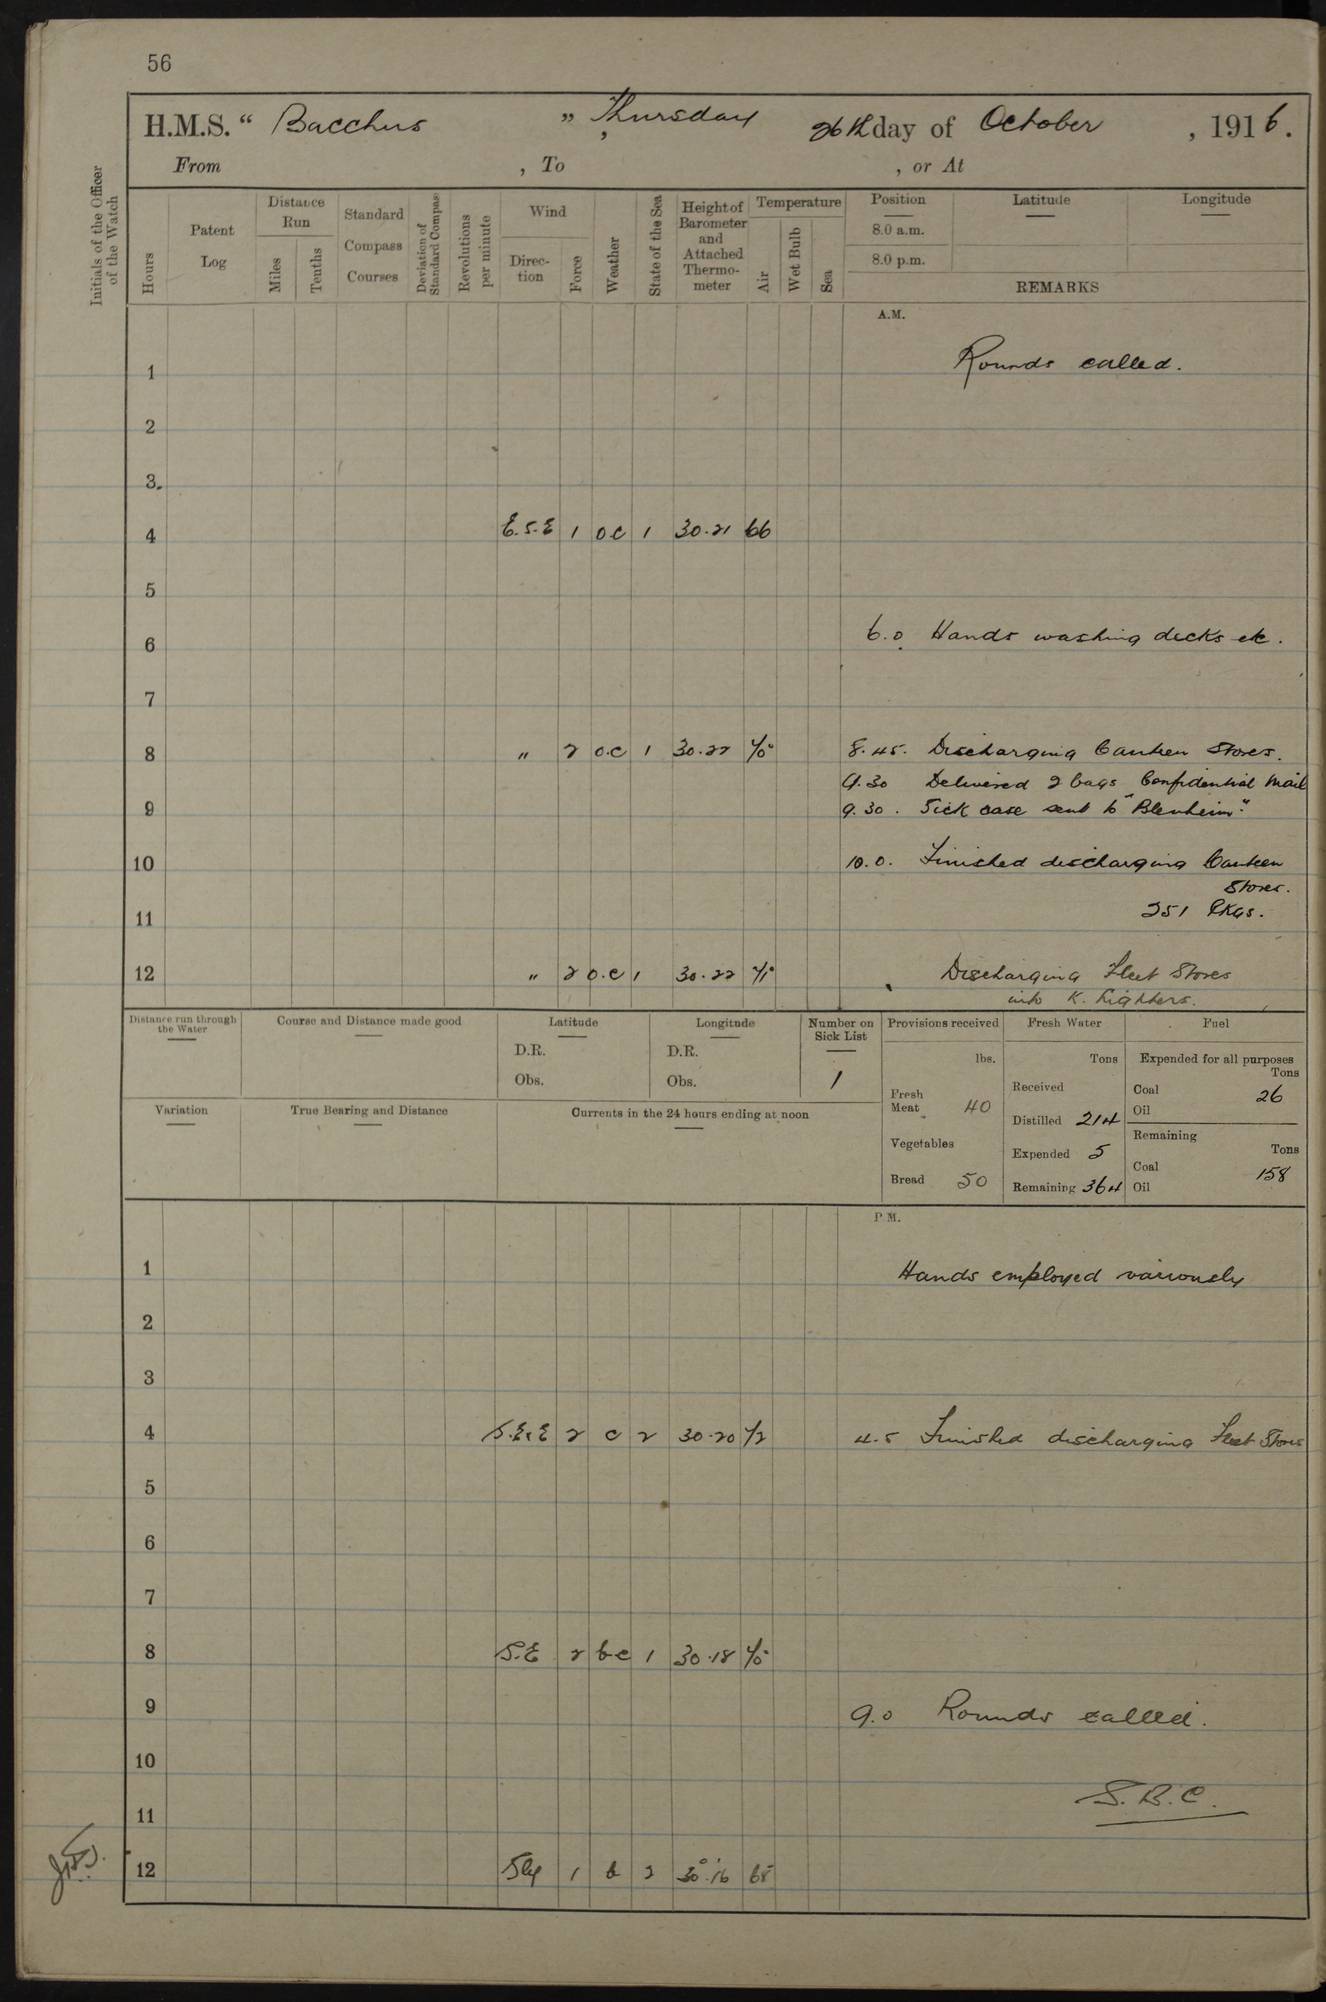 56
H.M.S. “ Bacchus ” , Thursday 26th day of October , 1916.
From , To , or At
Initials of the Officer of the Watch
Hours
Patent Log
Distance Run
Miles
Tenths
Standard Compass Courses
Deviation of Standard Compass
Revolutions per minute
Wind
Direction
Force
Weather
State of the Sea
Height of Barometer and Attached Thermometer
Temperature
Air
Wet Bulb
Sea
Position
8.0 a.m.
8.0 p.m.
Latitude
Longitude
REMARKS
A.M.
1 Rounds called.
2
3
4 E.S.E 1 o c 1 30.21 66
5
6 6.0 Hands washing decks etc.
7
8 " 2 o.c 1 30.22 70 8.45. Discharging Canteen Stores.
9.30 Delivered 2 bags Confidential Mail
9 9.30. Sick case sent to "Blenheim".
10 10.0. Finished discharging Canteen
Stores.
11 251 Pkgs.
12 " 2 o.c 1 30.22 71 Discharging Fleet Stores
into K. Lighters.
Distance run through the Water
Course and Distance made good
Latitude
D.R.
Obs.
Longitude
D.R.
Obs.
Number on Sick List
1
Provisions received
lbs.
Fresh Meat 40
Vegetables
Bread 50
Fresh Water
Tons
Received
Distilled 214
Expended 5
Remaining 364
Fuel
Expended for all purposes
Tons
Coal 26
Oil
Remaining
Tons
Coal 158
Oil
Variation
True Bearing and Distance
Currents in the 24 hours ending at noon
P.M.
1 Hands employed variously
2
3
4 S.E.E 2 c 2 30.20 72 4.5 Finished discharging Fleet Stores
5
6
7
8 S.E 2 b c 1 30.18 70
9 9.0 Rounds called.
10
S.B.C.
11
12 Sly 1 b 2 30.16 68